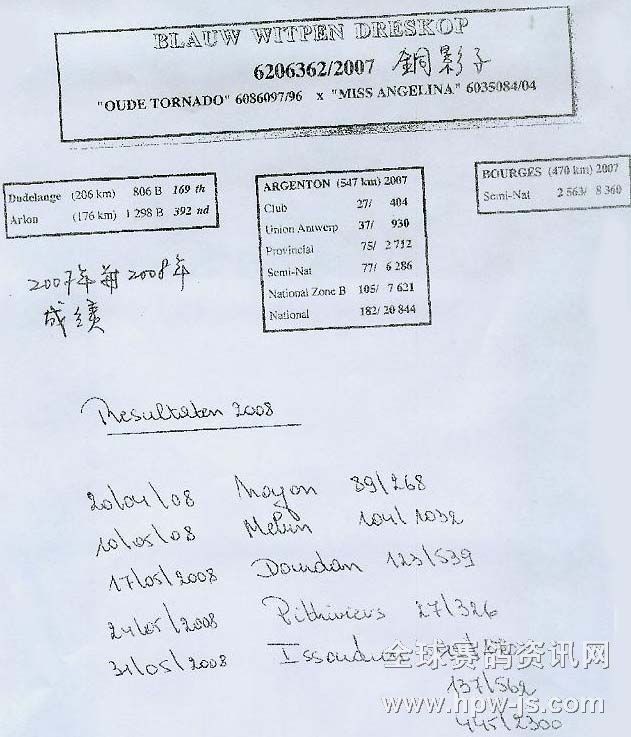 BLAUW WITPEN DRESKOP
6206362/2007 銅影子
"OUDE TORNADO" 6086097/96 x "MISS ANGELINA" 6035084/04
Dudelange (206 km) 806 B 169 th
Arlon (176 km) 1 298 B 392 nd
ARGENTON (547 km) 2007
Club 27/ 404
Union Antwerp 37/ 930
Provincial 75/ 2 712
Semi-Nat 77/ 6 286
National Zone B 105/ 7 621
National 182/ 20 844
BOURGES (470 km) 2007
Semi-Nat 2 563/ 8 360
2007年和2008年
成绩
Resultaten 2008
20/04/08 Noyon 89/268
10/05/08 Melun 104/1032
17/05/2008 Dourdan 123/539
24/05/2008 Pithiviers 27/326
31/05/2008 Issoudun
137/562
445/2300
全球赛鸽资讯网
www.hpw-js.com